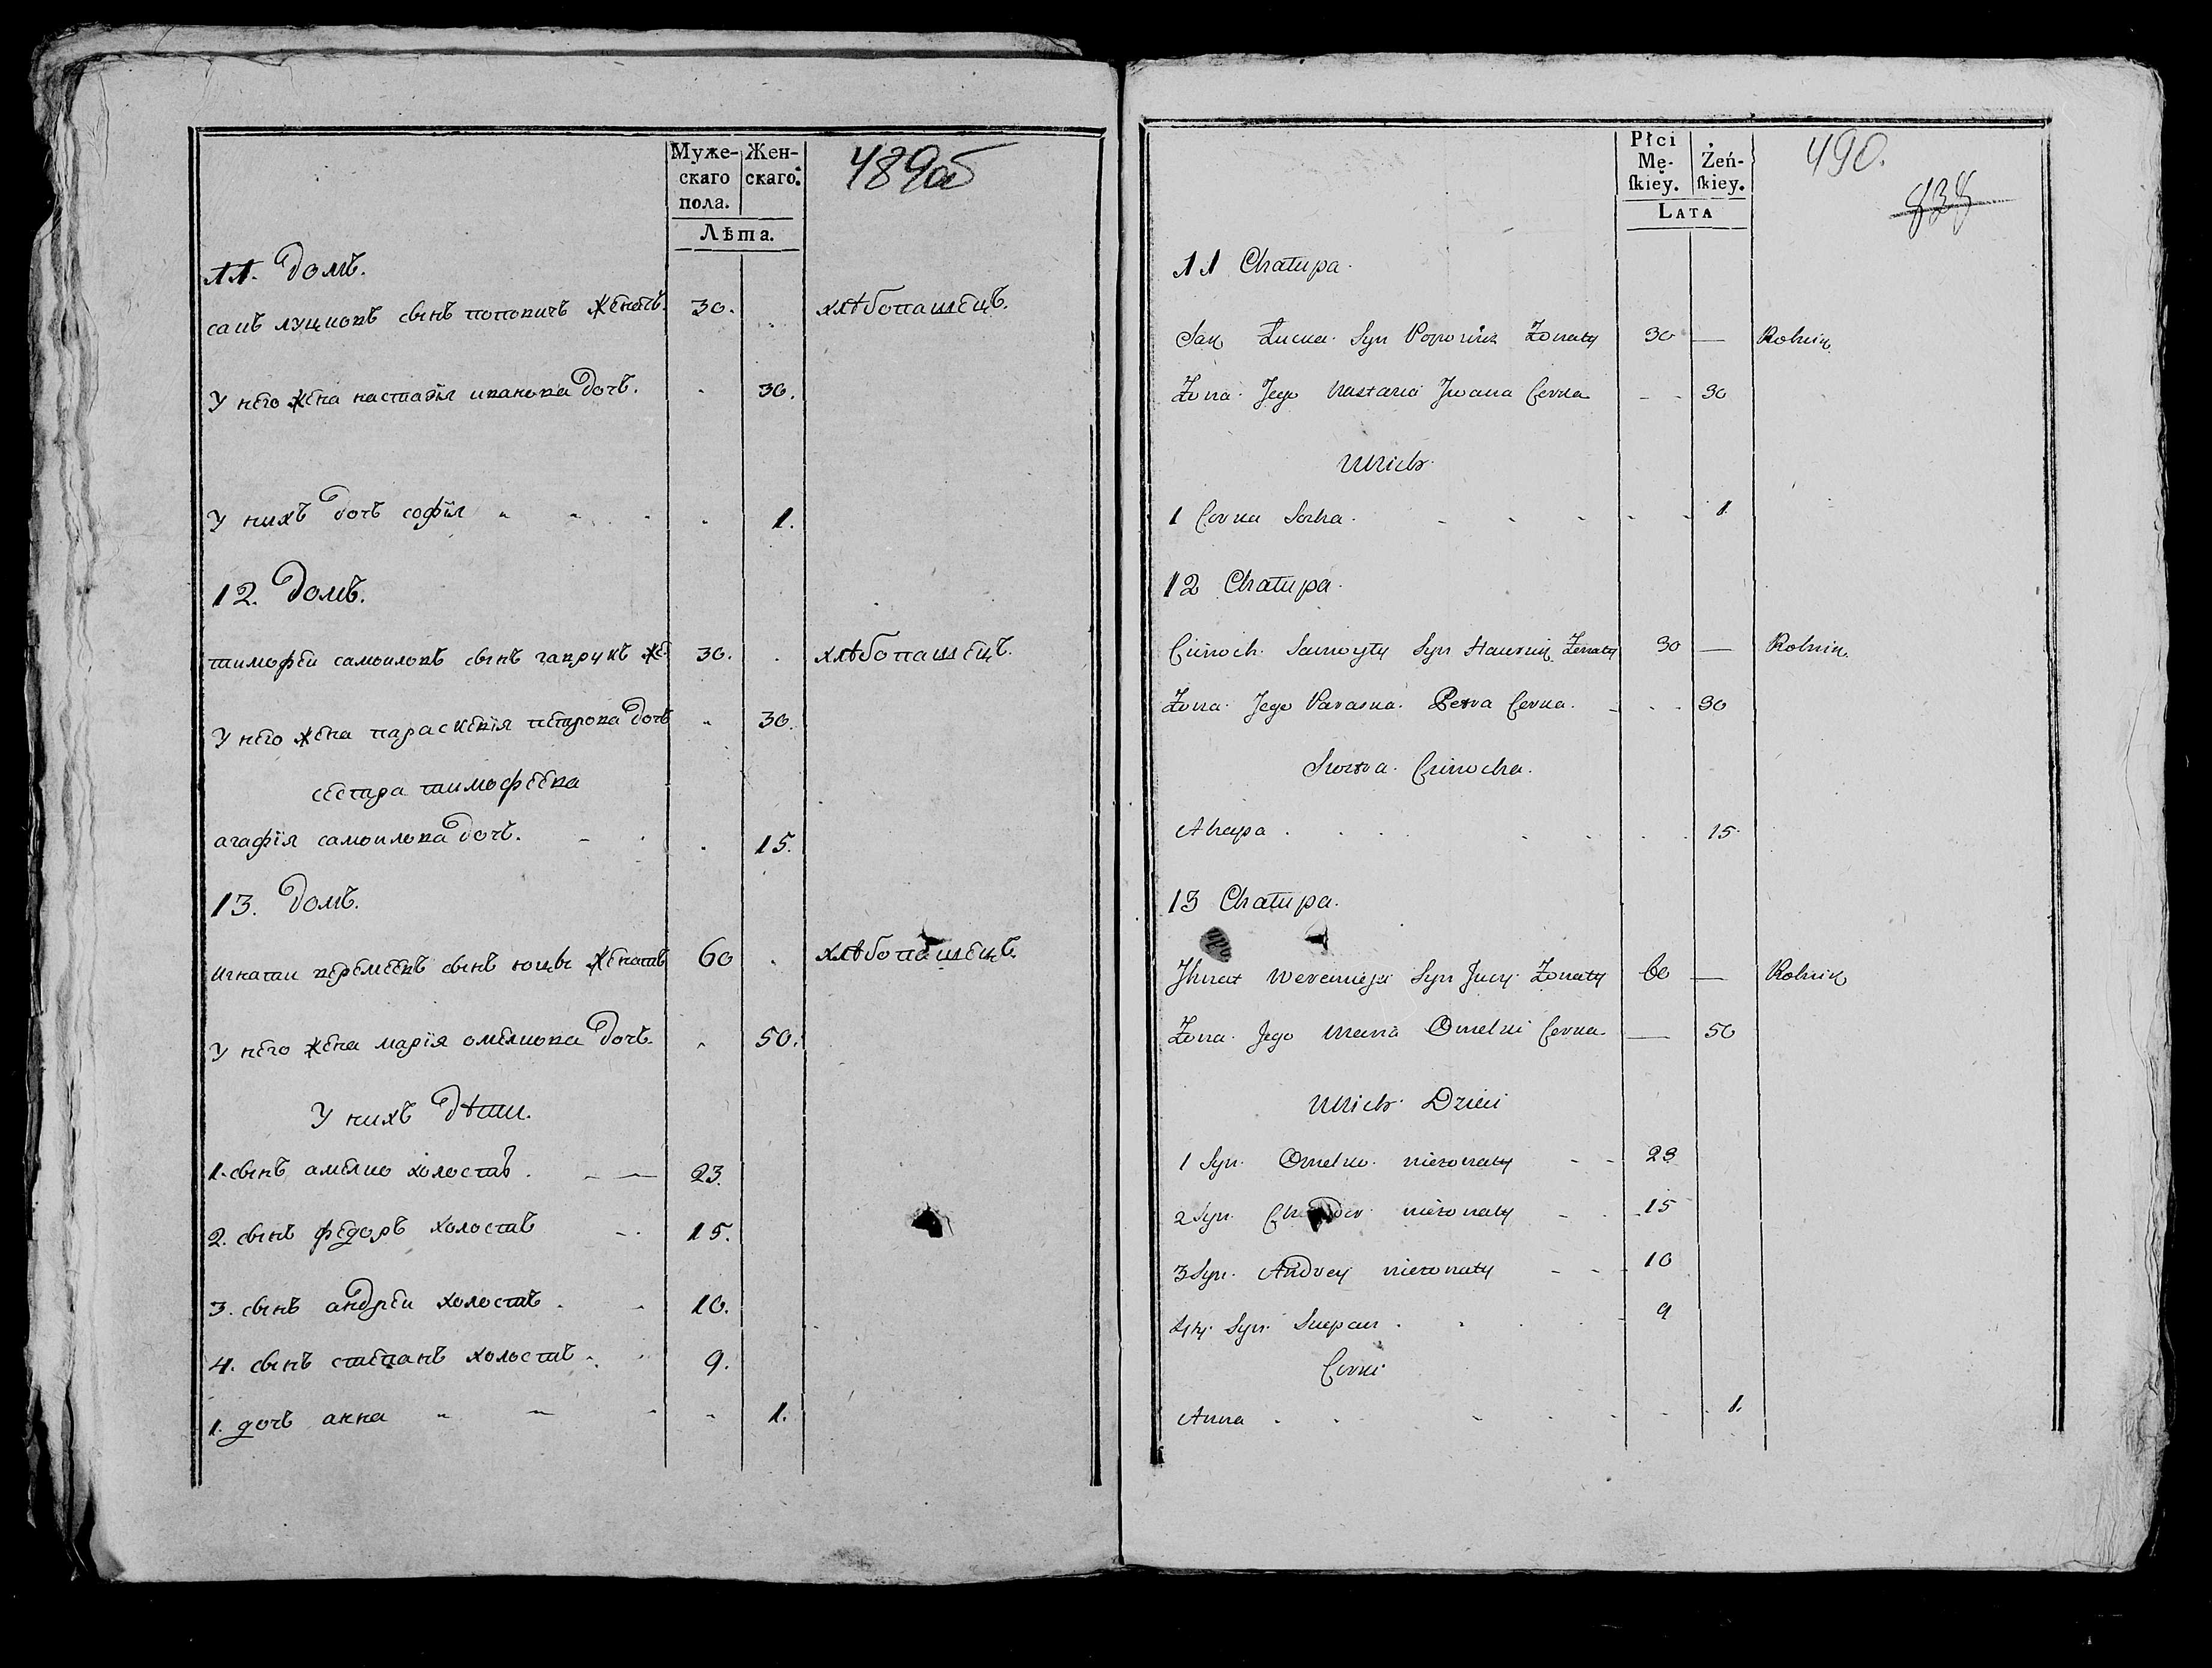 Муже-
скаго
пола.
Жен-
скаго.
Лѣта.
489об
11. Домъ.
сацъ луциовъ сынъ поповичъ женатъ. 30. хлѣбопашецъ.
У него жена настазїя иванова дочь. 30.
У нихъ дочъ софїя 1.
12. Домъ.
тимофеи самоиловъ сынъ гаврукъ же. 30. хлѣбопашецъ.
У него жена параскевїя петрова дочь 30.
сестра тимофеева
агафїя самоилова дочъ. 15.
13. Домъ.
игнатии веремеевъ сынъ юцы женатъ 60 хлѣбопашецъ.
У него жена марїя омелиова дочъ. 50.
У нихъ дѣти.
1. сынъ амелио холостъ. 23.
2. сынъ федоръ холостъ 15.
3. сынъ андреи холостъ. 10.
4. сынъ степанъ холостъ. 9.
1. дочъ анна 1.
Płci
Mę-
skiey.
Żeń-
skiey.
Lata
490.
11 Chałupa.
Sak Łucka. Syn Popowicz Żonaty 30 — Rolnik
Żona. Jego Nastazia Jwana Corka 30
Unich.
1 Corka Soska. 1.
12 Chałupa.
Cimoch. Samoyły Syn Hawruk Żonaty 30 — Rolnik.
Żona. Jego Paraska. Petra Corka. 30
Siostra. Cimocha.
Ahapa 15.
13 Chałupa.
Jhnat Weremieja Syn Jucy. Żonaty 60 — Rolnik
Żona. Jego Maria Omelki Corka. — 50
Unich. Dzieci
1 Syn. Omelko. nieżonaty 23
2 Syn. nieżonaty 15
3 Syn. Andrey nieżonaty 10
4ty. Syn. Sciepan. 9
Corki.
Anna 1.